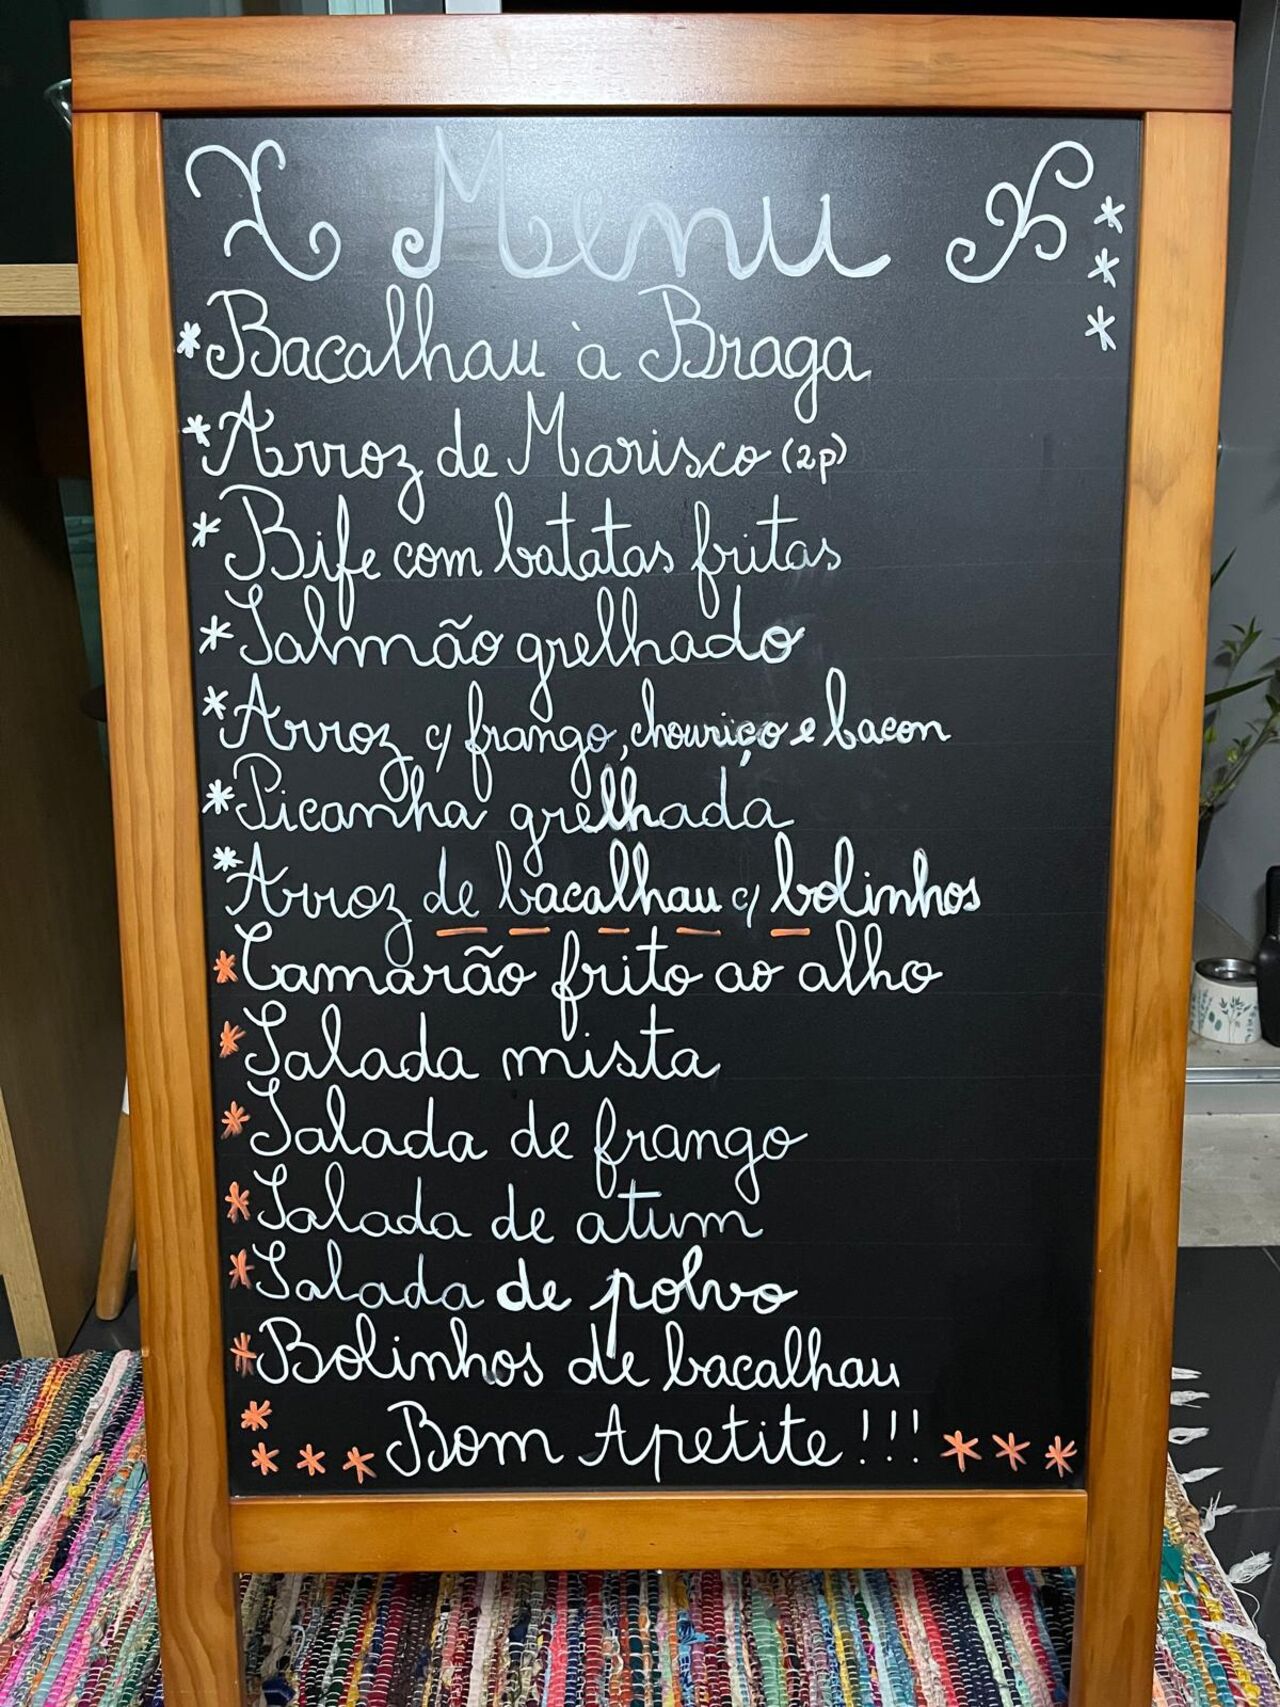 Menu
*Bacalhau à Braga
*Arroz de Marisco (2p)
*Bife com batatas fritas
*Salmão grelhado
*Arroz c/ frango, chouriço e bacon
*Picanha grelhada
*Arroz de bacalhau c/ bolinhos
*Camarão frito ao alho
*Salada mista
*Salada de frango
*Salada de atum
*Salada de polvo
*Bolinhos de bacalhau
Bom Apetite!!!